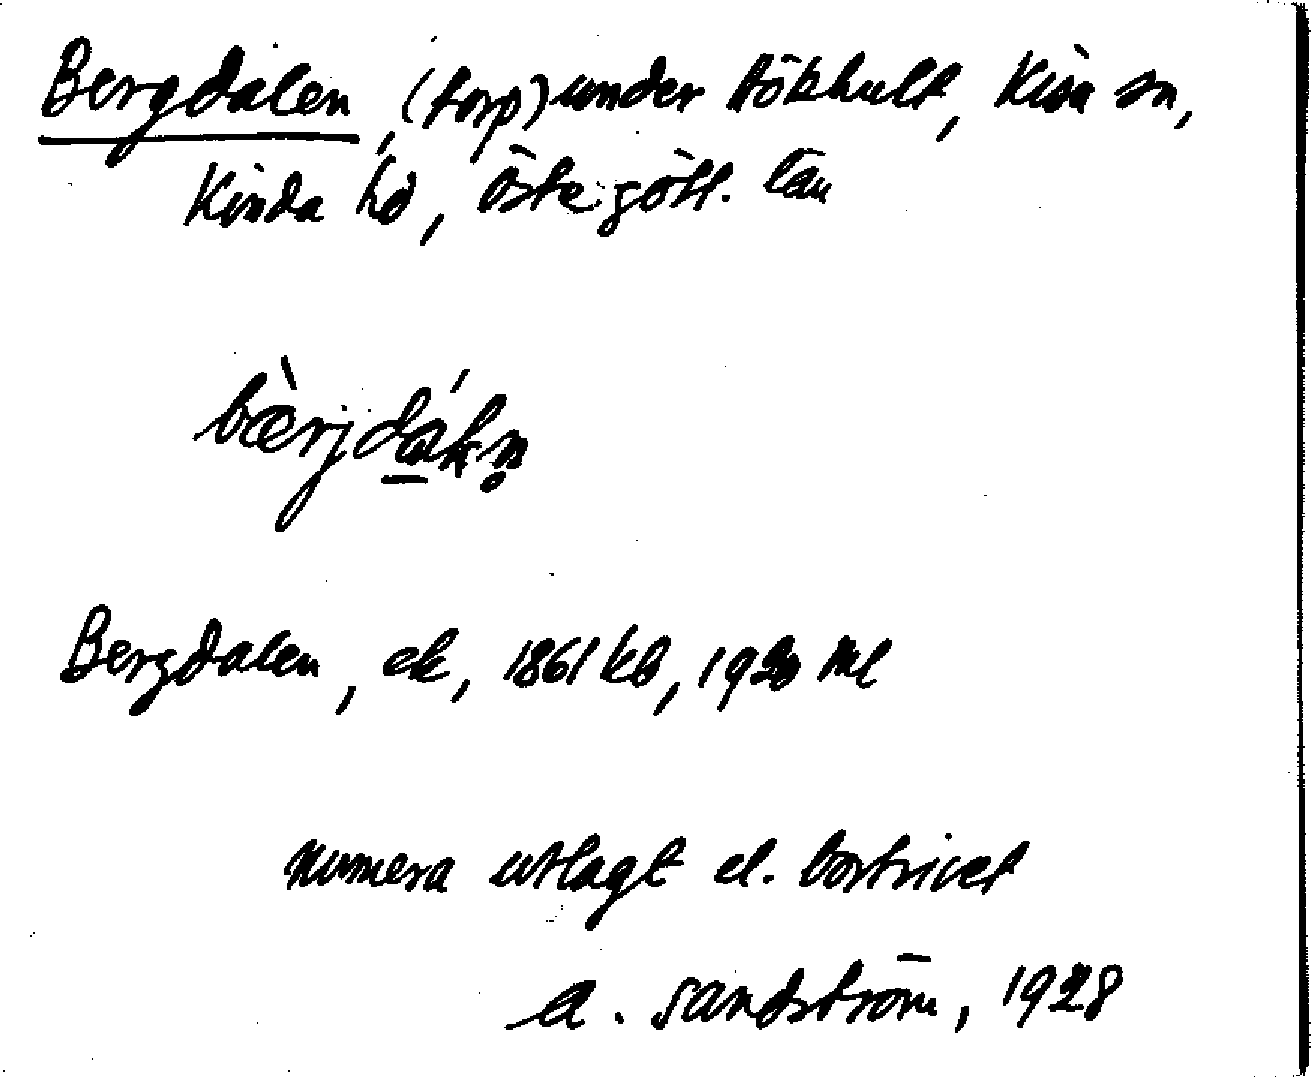 Bergdalen, (torp) under Bökhult, Kisa sn,
Kinda hd, Östergötl. län
bærjdaln̥
Bergdalen, ek, 1861 kb, 1920 ml
Numera utlagt el. bortrivet
A. Sandström, 1928